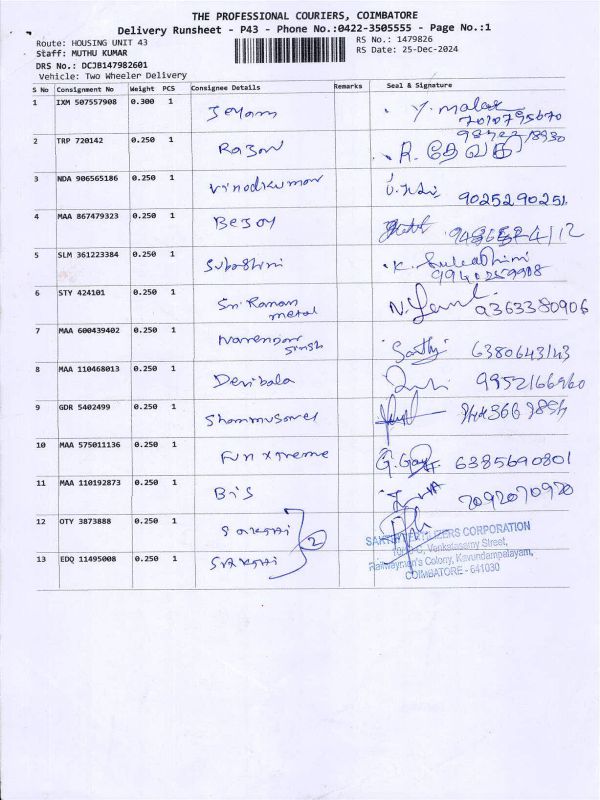 THE PROFESSIONAL COURIERS, COIMBATORE
Delivery Runsheet - P43 - Phone No.:0422-3505555 - Page No.:1
Route: HOUSING UNIT 43
RS No.: 1479826
Staff: MUTHU KUMAR
RS Date: 25-Dec-2024
DRS No.: DCJB147982601
Vehicle: Two Wheeler Delivery
S No Consignment No Weight PCS Consignee Details Remarks Seal & Signature
1 IXM 507557908 0.300 1 Jeyam Y. malar
7010795670
2 TRP 720142 0.250 1 Rajan R. தேவகி
3 NDA 906565186 0.250 1 Vinodkumar
9025290251
4 MAA 867479323 0.250 1 Bejoy
5 SLM 361223384 0.250 1 Subashini K. Subashini
9940259908
6 STY 424101 0.250 1 Sri Raman
metal
9363380906
7 MAA 600439402 0.250 1 Narendar
Singh
6380643143
8 MAA 110468013 0.250 1 Devibala 9952166960
9 GDR 5402499 0.250 1
10 MAA 575011136 0.250 1 Fun xtreme 6385690801
11 MAA 110192873 0.250 1 Bis 7092070970
12 OTY 3873888 0.250 1 Sakthi 2
13 EDQ 11495008 0.250 1 Sakthi
CORPORATION
Venkatasamy Street,
Railwaymen's Colony, Kavundampalayam,
COIMBATORE - 641030